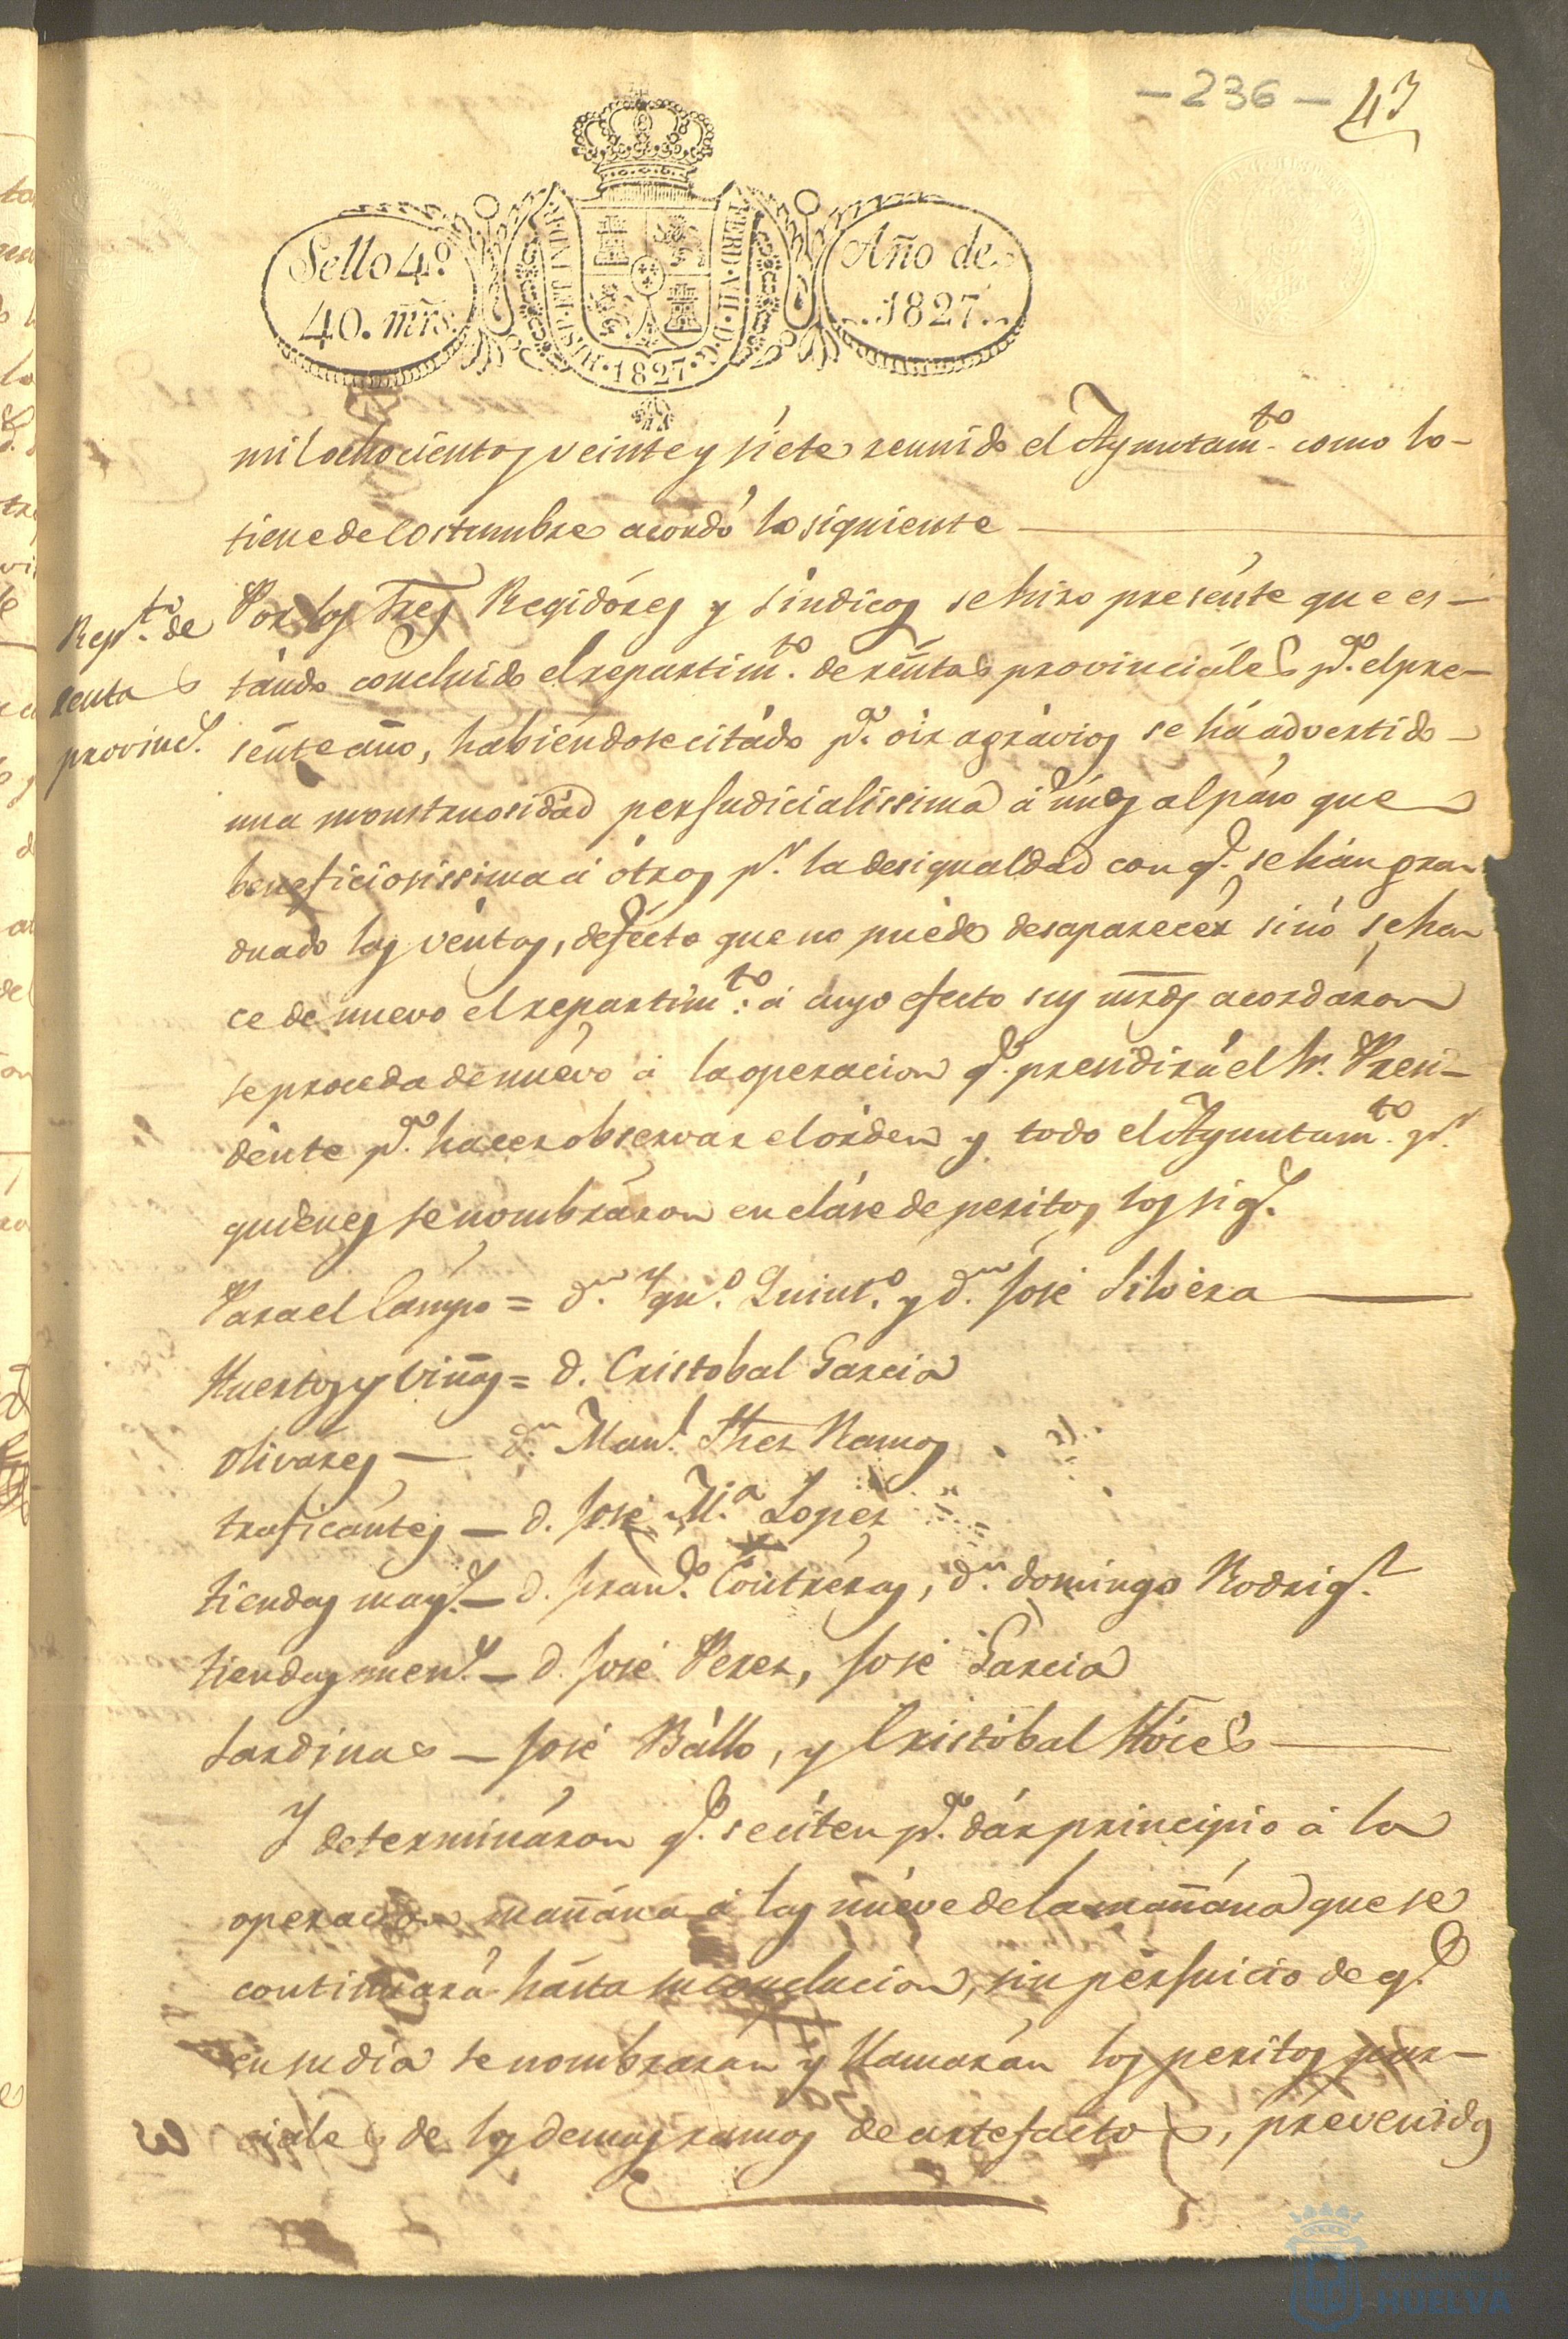 - 236 - 43
Sello 4º.
40. mrs.
HISP. ET IND. R. FERD. VII. D. G. 1827.
Año de
1827.
mil ochocientos veinte y siete reunido el Ayuntamto. como lo
tiene de costumbre acordó lo siguiente
Reptto. de
rentas
provincs.
Por los tres Regidóres y sindicos se hizo presénte que es-
tándo concluido el repartimto. de réntas provinciáles pa. el pre-
sénte año, habiéndose citádo pa. oir agrávios se há advertido
una monstruosidád persudicialissima á únos al páso que
beneficiosissima á ótros pr. la desigualdad con qe. se hán gra-
duado las véntas, defécto que no puéde desaparecér sinó se ha-
ce de nuevo el repartimto.: á cuyo efecto sus mrds acordáron
se proceda de nuévo á la operacion qe. presidirá el Sr. Presi-
dénte pa. hacer observar el órden y todo el Ayuntamto. pr.
quiénes se nombráron en cláse de peritos los sigs.
Para el Campo = dn. Ygno. Quinto. y dn. José Silvéra
Huertos y viñas = d. Cristobal Garcia
olivares — dn. Manl. Shez Ramos
traficántes — d. José Ma. Lopez
tiendas mays. — d. Franco. Contréras, dn. domingo Rodrigz.
tiendas mens. — d. José Perez, José Garcia
Sardinas — José Bállo, y Cristóbal Hóces
Y determináron qe. se citen pa. dár principio á la
operacion mañána á las nuéve de la mañána que se
continuará hásta su conclucion, sin persuicio de qe.
en su dia se nombraran y llamarán los peritos par-
ciales de los demas ramos de artefactos, prevenidos
HUELVA